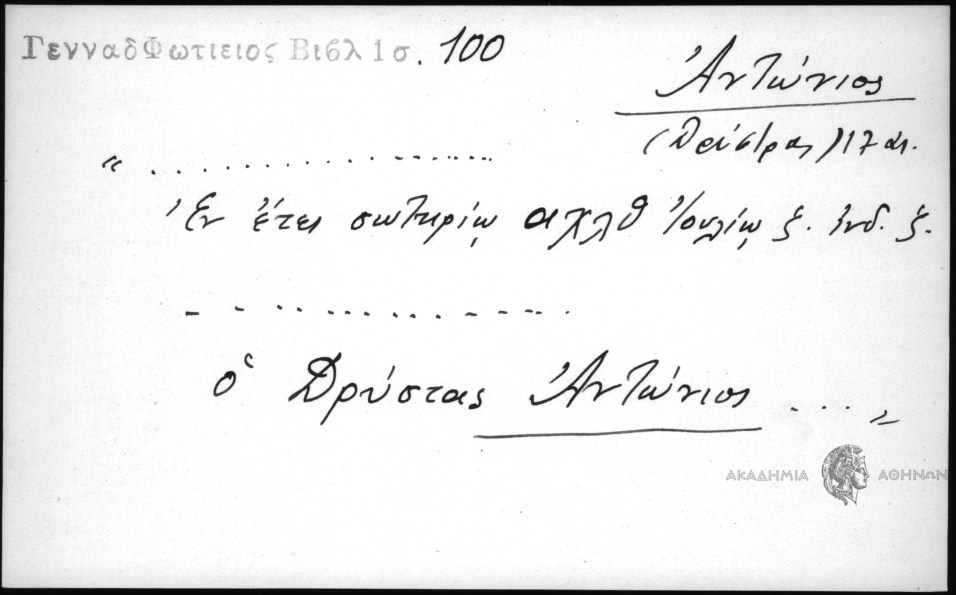 ΓενναδΦωτιειος Βιβλ 1σ. 100
Ἀντώνιος
(Δρύστρας) 17 αι.
" ..............................
Ἐν ἔτει σωτηρίῳ αχλθ Ἰουλίῳ ξ. ἰνδ. ξ.
..............................
ὁ Δρύστας Ἀντώνιος ... "
ΑΚΑΔΗΜΙΑ ΑΘΗΝΩΝ